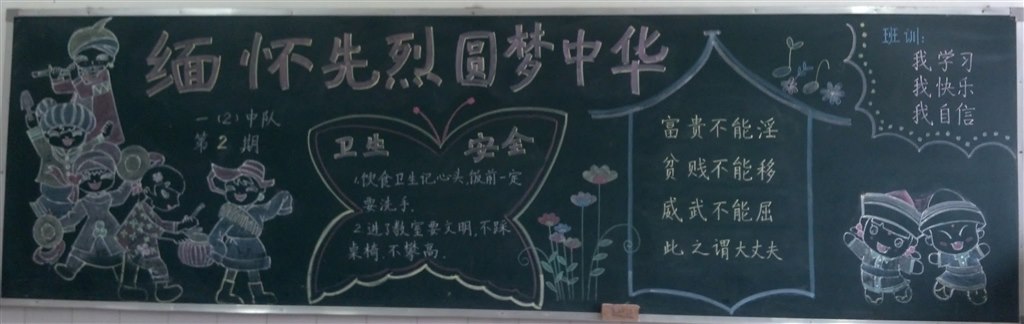 缅怀先烈圆梦中华
一(2)中队
第2期
卫生 安全
1.饮食卫生记心头,饭前一定
要洗手.
2.进了教室要文明,不踩
桌椅,不攀高.
富贵不能淫
贫贱不能移
威武不能屈
此之谓大丈夫
班训:
我学习
我快乐
我自信